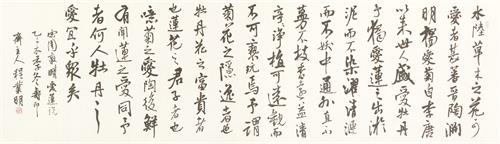 水陸草木之花可
愛者甚蕃晉陶淵
明獨愛菊自李唐
以來世人盛愛牡丹
予獨愛蓮之出淤
泥而不染濯清漣
而不妖中通外直不
蔓不枝香遠益清
亭亭淨植可遠觀而
不可褻玩焉予謂
菊花之隱逸者也
牡丹花之富貴者
也蓮花之君子者也
噫菊之愛陶後鮮
有聞蓮之愛同予
者何人牡丹之
愛宜乎眾矣
周敦頤愛蓮說